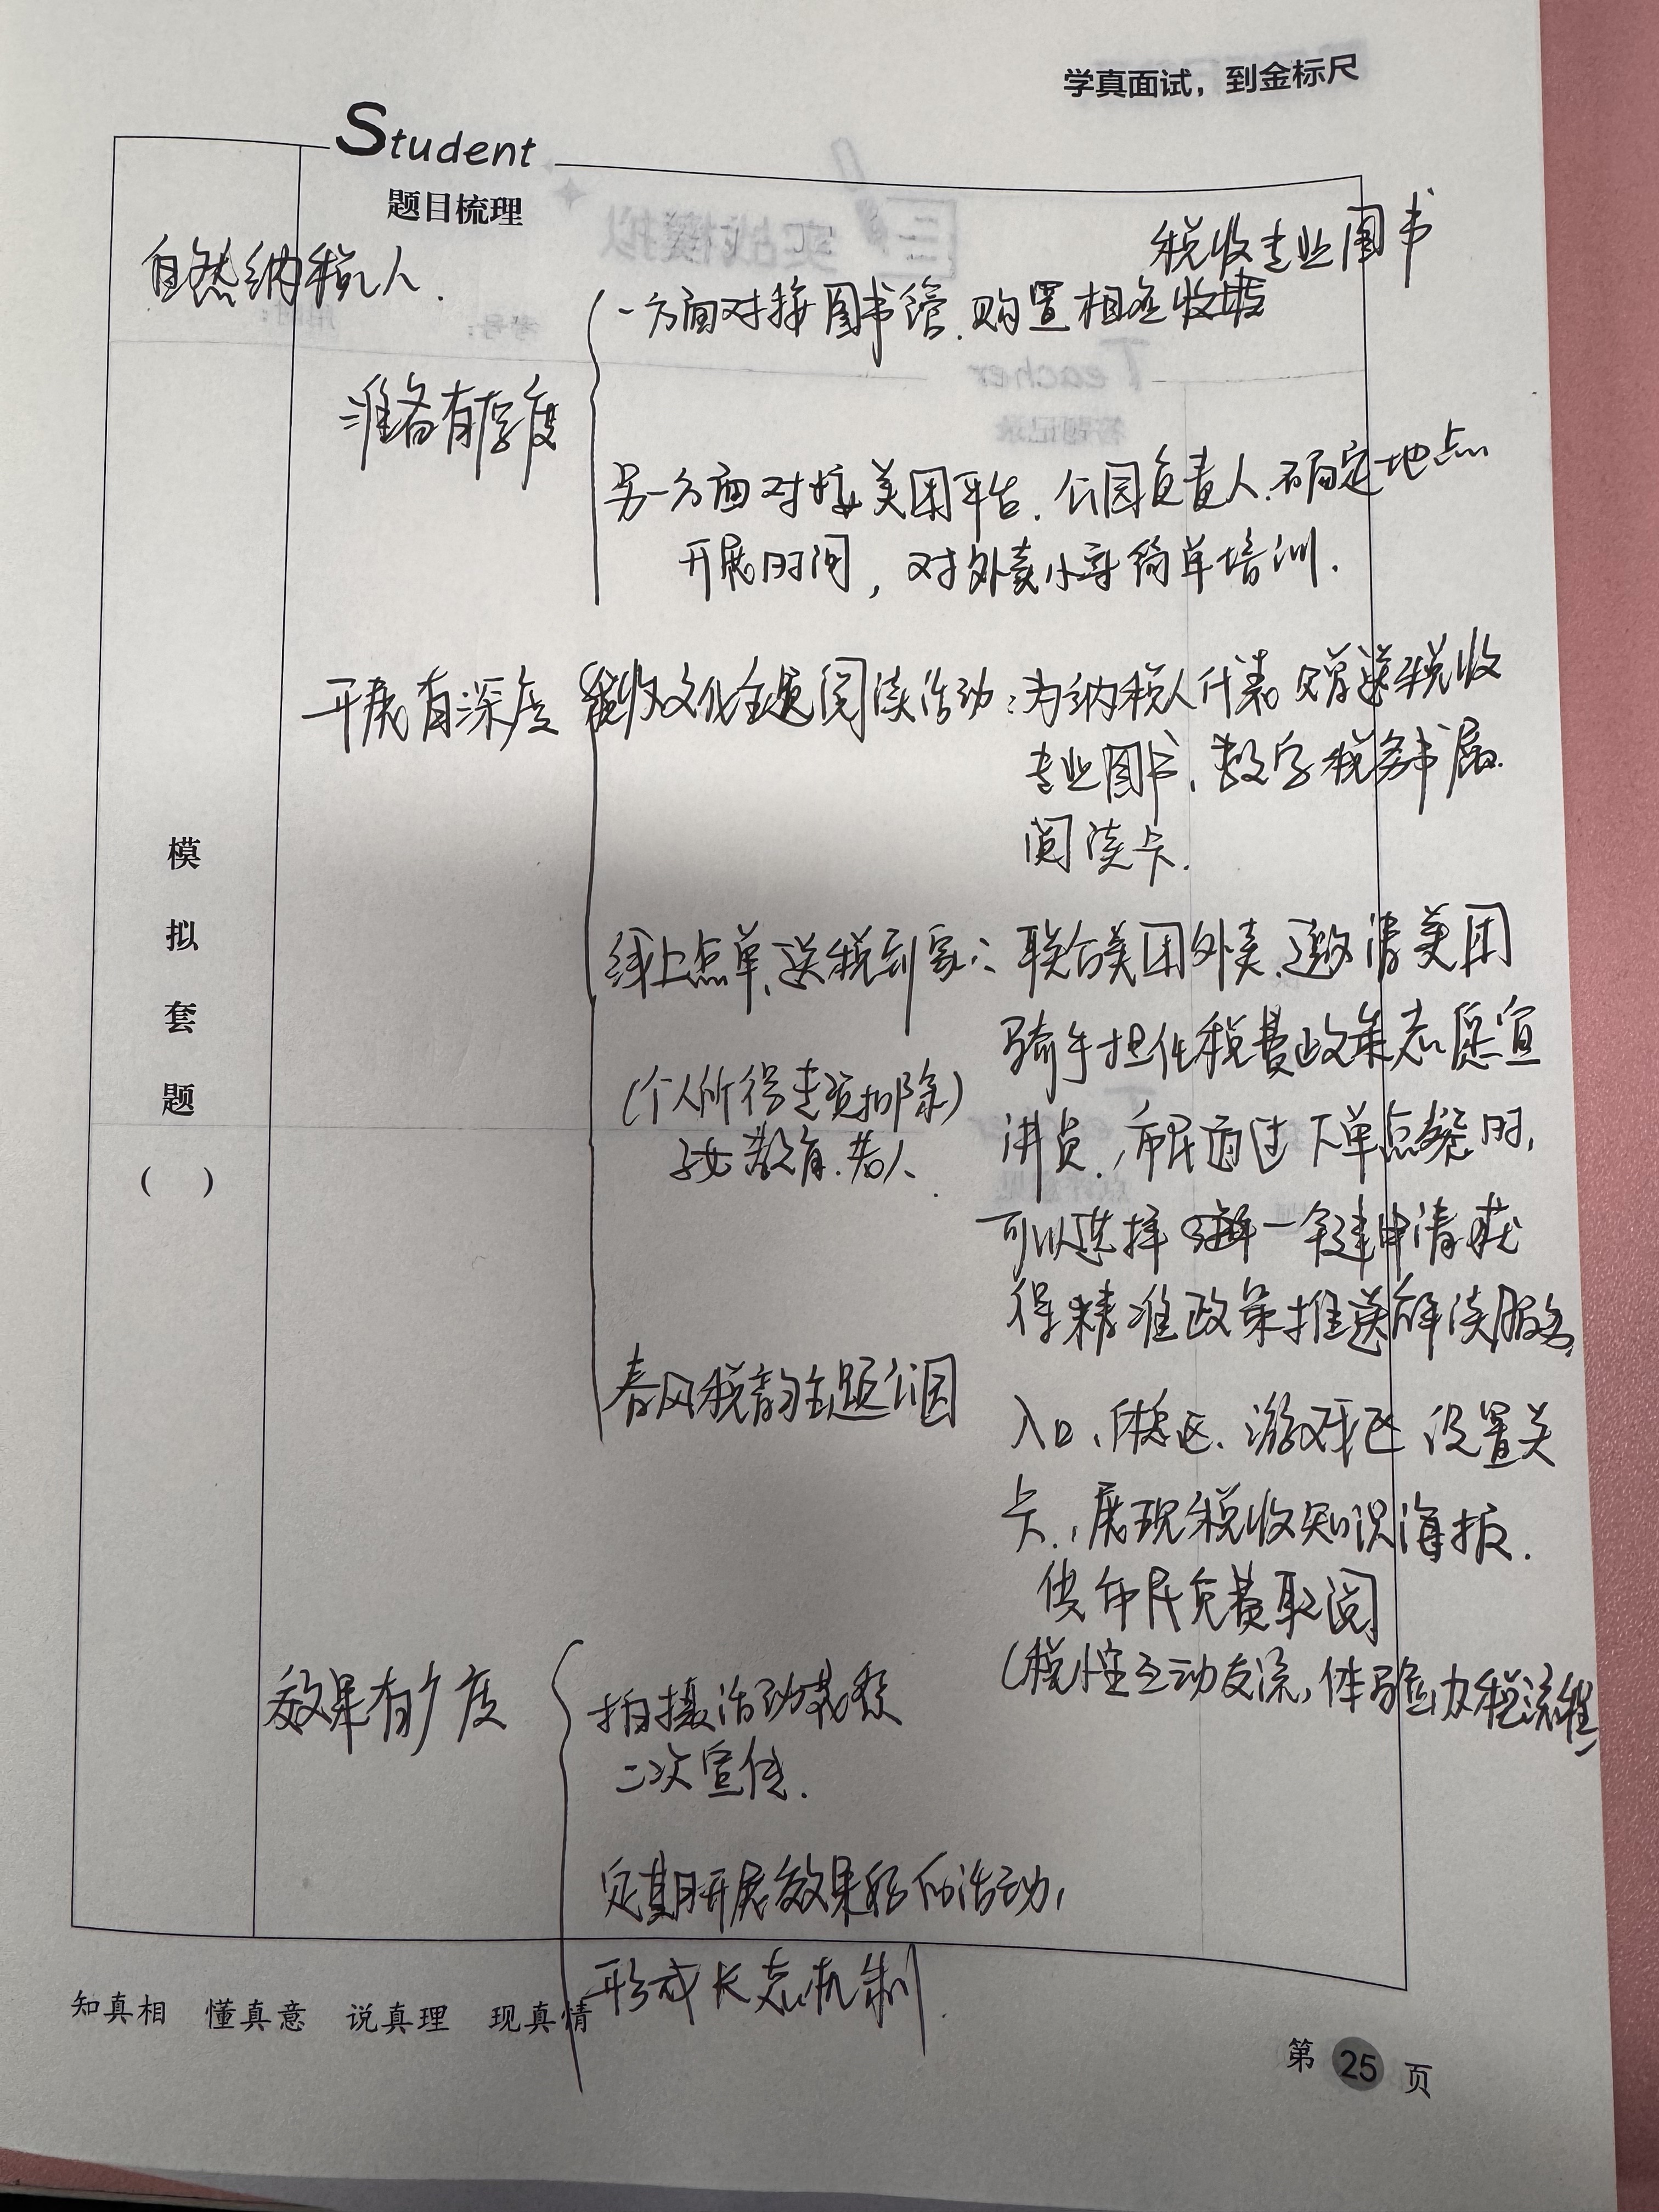 学真面试，到金标尺
Student
题目梳理
自然纳税人.
税收专业图书
一方面对接图书馆.购置相应
准备有
另一方面对接美团平台.公园负责人.确定地点
开展时间，对外卖小哥简单培训.
开展有深度
税收文化主题阅读活动：为纳税人代表赠送税收
专业图书、数字税务书屋
阅读卡.
线上点单、送税到家：联合美团外卖.邀请美团
骑手担任税费政策志愿宣
讲员.市民通过下单点餐时,
可以选择一键申请获
得精准政策推送解读服务
(个人所得专项扣除)
子女教育.老人.
春风税韵主题公园
入口、休憩区.游戏区设置关
卡.展现税收知识海报.
供市民免费取阅
(税性互动交流,体验办税流程)
效果有广度
拍摄活动花絮
二次宣传.
定期开展效果好的活动,
形成长态机制.
模
拟
套
题
( )
知真相 懂真意 说真理 现真情
第 25 页